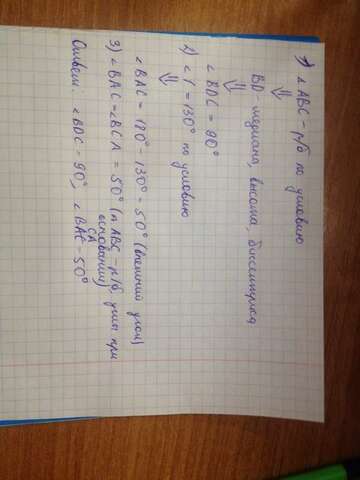 1) ∠ABC - р/б по условию
⇓
BD - медиана, высота, биссектриса
⇓
∠BDC = 90°
2) ∠1 = 130° по условию
⇓
∠BAC = 180° - 130° = 50° (внешний угол)
3) ∠BAC = ∠BCA = 50° (п ABC - р/б, углы при
основании)
Ответ: ∠BDC = 90°, ∠BAC = 50°
CA